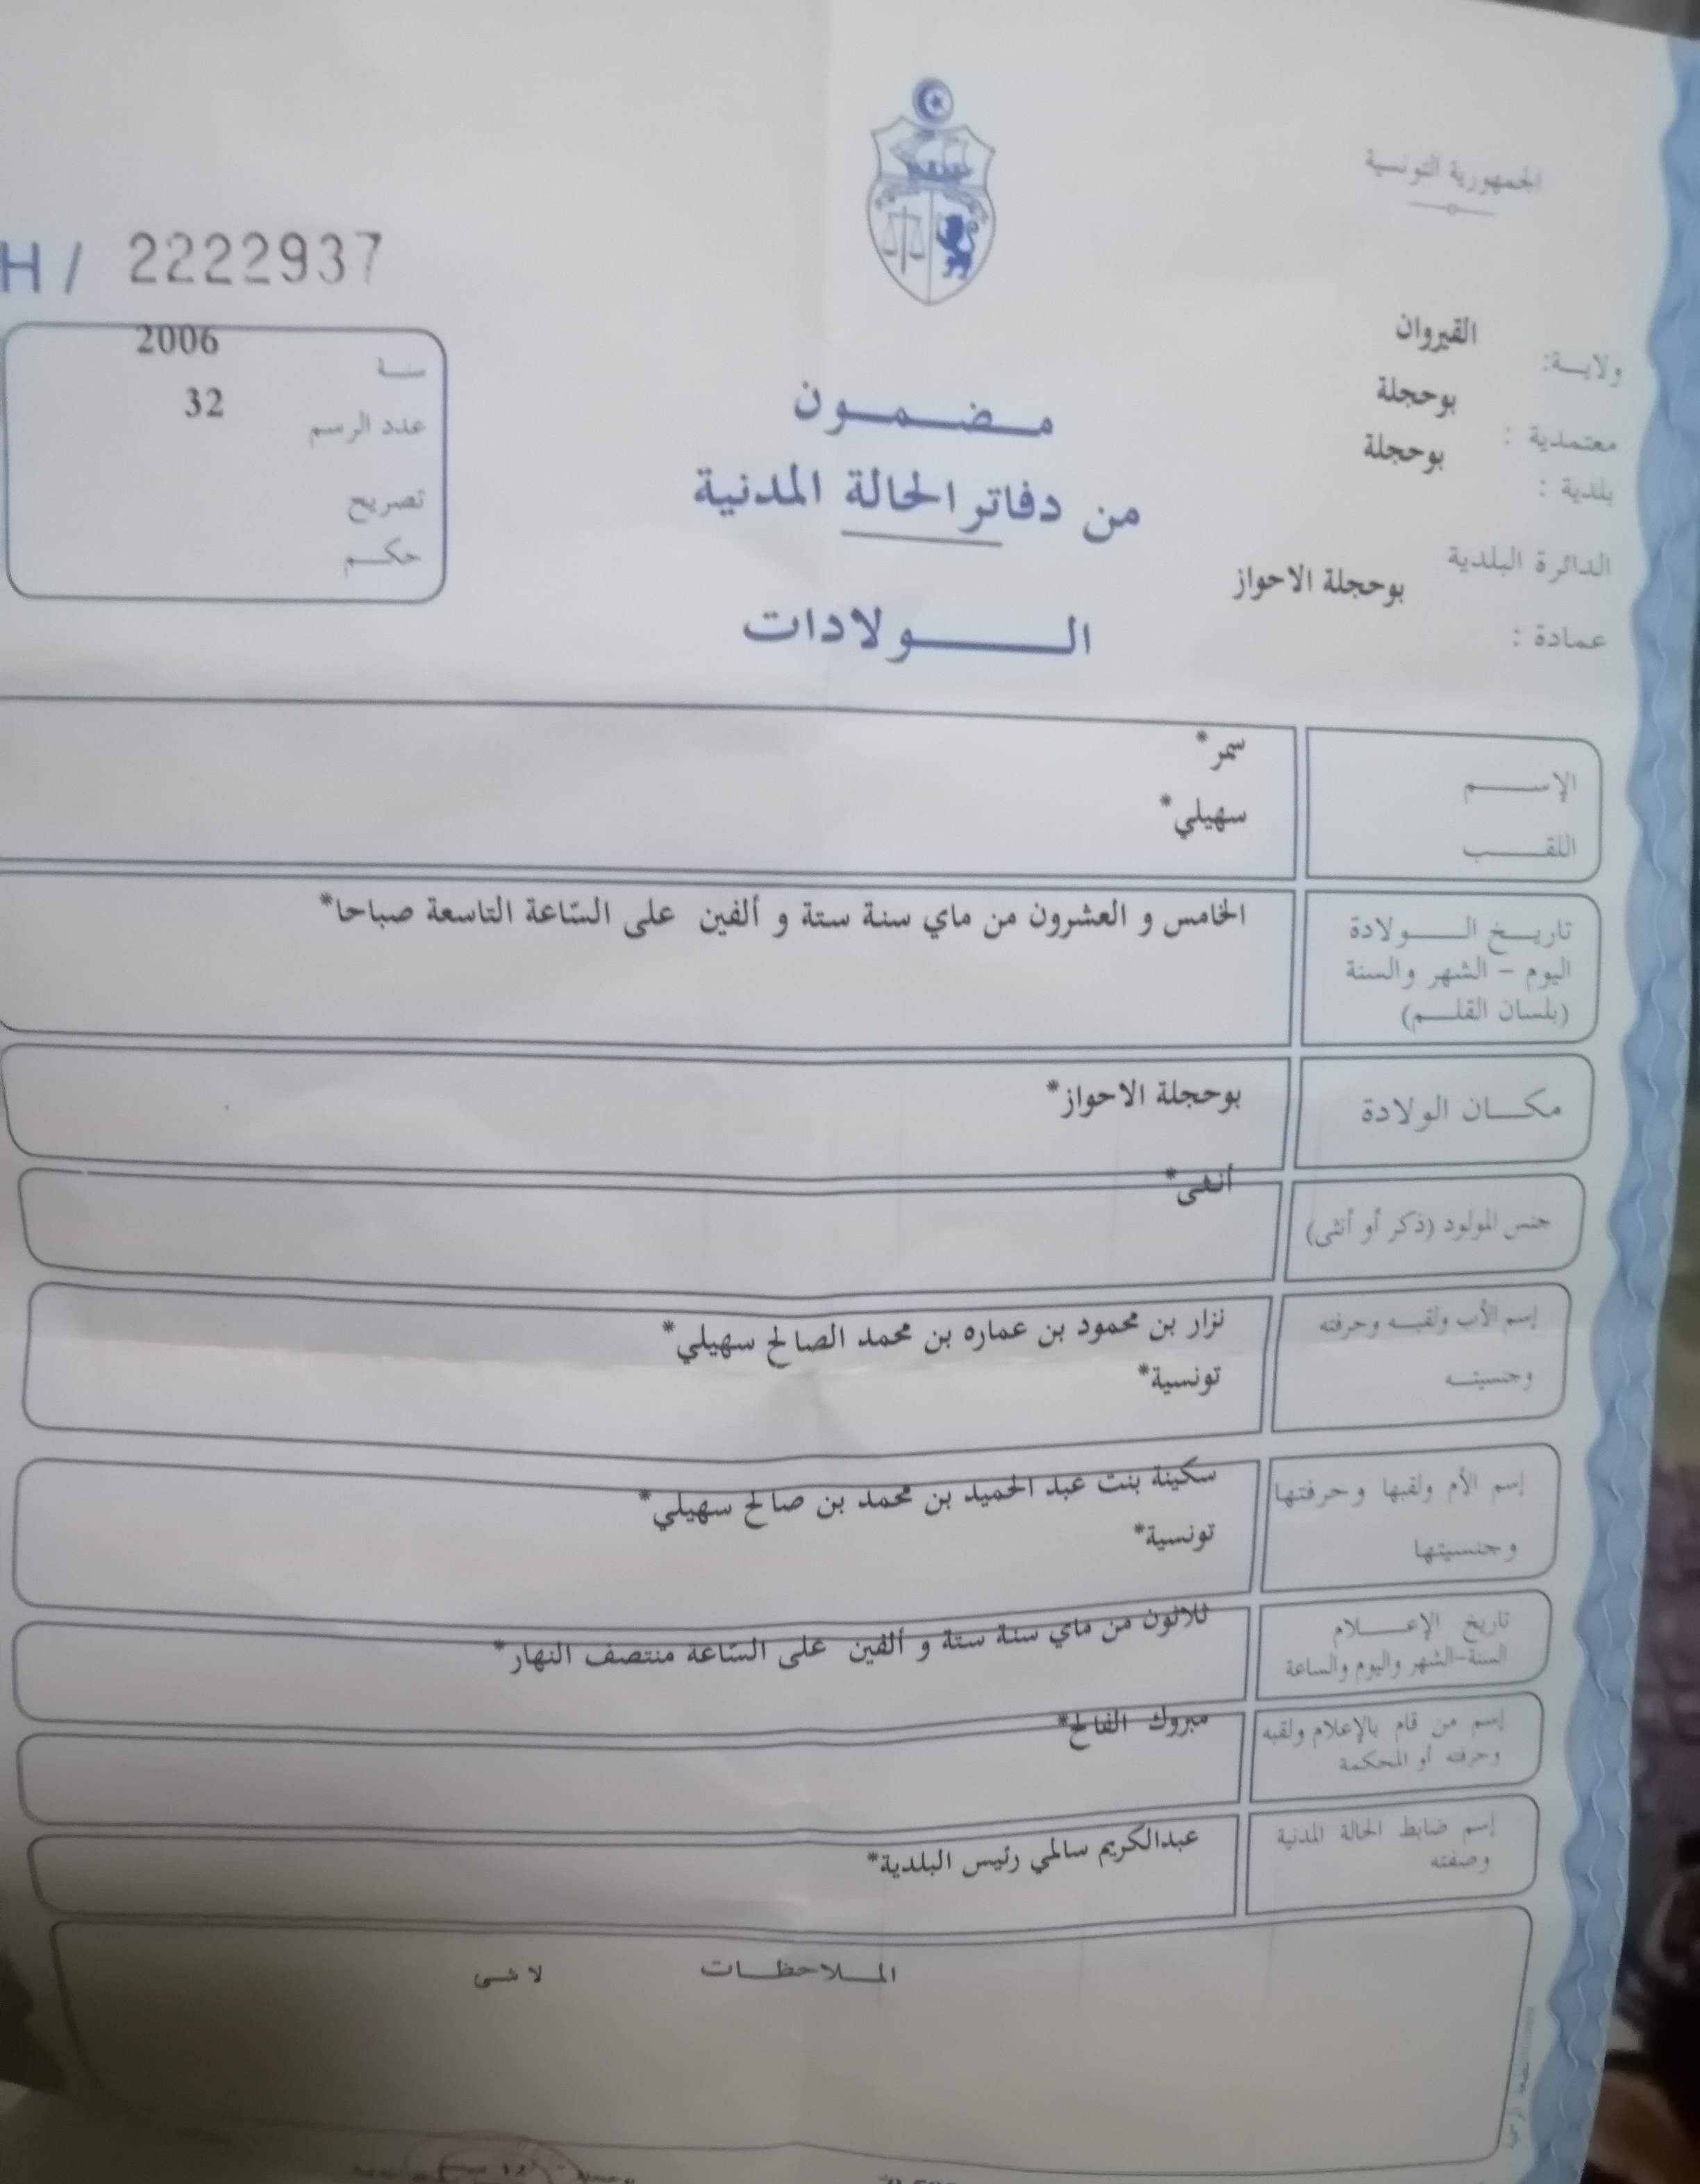 الجمهورية التونسية
H / 2222937
ولايـــة: القيروان
معتمدية : بوحجلة
بلدية : بوحجلة
الدائرة البلدية
بوحجلة الاحواز
عمادة :
سنــة 2006
عدد الرسم 32
تصريح
حكـــم
مـــضـــمـــون
من دفاتر الحالة المدنية
الـــــــولادات
الإســـــم سمر*
اللقــــب سهيلي*
تاريـــخ الـــــولادة الخامس و العشرون من ماي سنة ستة و ألفين على السّاعة التاسعة صباحا*
اليوم - الشهر والسنة
(بلسان القلـــم)
مكـــان الولادة بوحجلة الاحواز*
جنس المولود (ذكر أو أنثى) أنثى*
إسم الأب ولقبـــه وحرفته نزار بن محمود بن عماره بن محمد الصالح سهيلي*
وجنسيتـــه تونسية*
إسم الأم ولقبها وحرفتها سكينة بنت عبد الحميد بن محمد بن صالح سهيلي*
وجنسيتها تونسية*
تاريخ الإعـــــلام ثلاثون من ماي سنة ستة و ألفين على السّاعة منتصف النهار*
السنة-الشهر واليوم والساعة
إسم من قام بالإعلام ولقبه مبروك الفالح*
وحرفته أو المحكمة
إسم ضابط الحالة المدنية عبدالكريم سالمي رئيس البلدية*
وصفته
المـــلاحظـــات لا شى